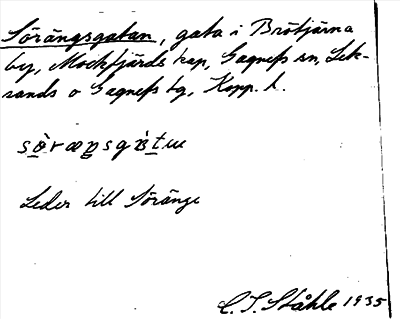 Sörängsgatan, gata i Brötjärna
by, Mockfjärds kap, Gagnefs sn, Lek-
sands o Gagnefs tg, Kopp. l.
Leder till Söränge
C. I. Ståhle 1935